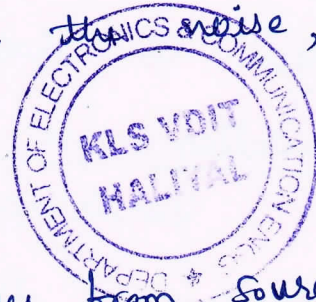 the noise,
DEPARTMENT OF ELECTRONICS & COMMUNICATION ENGG
KLS VDIT
HALIYAL
from Sour